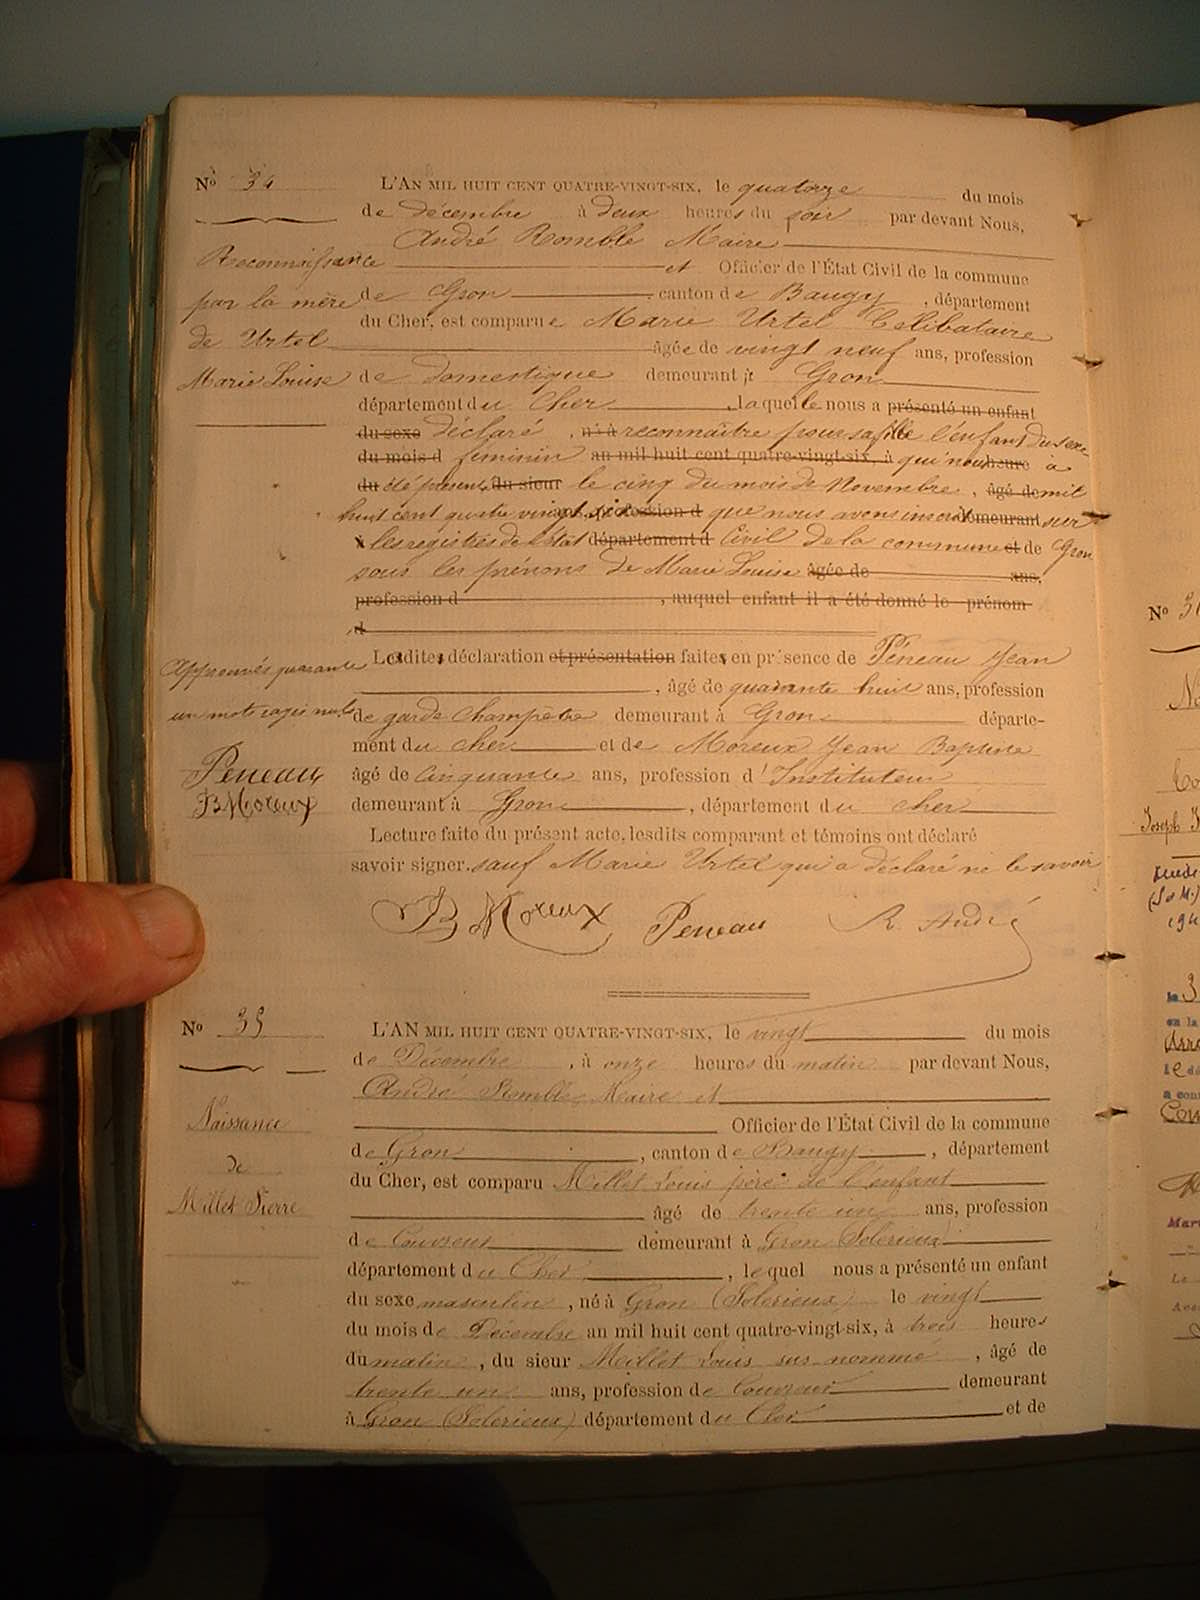 No 34
Reconnaissance
par la mère
de Urtel
Marie Louise
L'AN MIL HUIT CENT QUATRE-VINGT-SIX, le quatorze du mois
de décembre à deux heures du soir par devant Nous,
André Romble Maire
et Officier de l'État Civil de la commune
de Gron canton de Baugy, département
du Cher, est comparue Marie Urtel Célibataire
âgée de vingt neuf ans, profession
de domestique demeurant à Gron
département du Cher, laquelle nous a présenté un enfant
du sexe déclaré, né à reconnaître pour sa fille l'enfant du sexe
du mois d féminin an mil huit cent quatre-vingt-six, à qui nous heure a
du été présenté du sieur le cinq du mois de Novembre, âgé de mil
huit cent quatre vingt profession d que nous avons inscrit demeurant sur
à les registres de l'état département d Civil de la commune et de Gron
sous les prénoms de Marie Louise âgée de ans,
profession d, auquel enfant il a été donné le prénom
d
Approuvés quarante
un mots rayés nuls
Peneau
JB Moreux
Ladite déclaration et présentation faite en présence de Péneau Jean
, âgé de quarante huit ans, profession
de garde champêtre demeurant à Gron départe-
ment du Cher et de Moreux Jean Baptiste
âgé de Cinquante ans, profession d'Instituteur
demeurant à Gron, département du Cher
Lecture faite du présent acte, lesdits comparant et témoins ont déclaré
savoir signer, sauf Marie Urtel qui a déclaré ne le savoir
JB Moreux Peneau R. André
No 35
Naissance
de
Millet Pierre
L'AN MIL HUIT CENT QUATRE-VINGT-SIX, le vingt du mois
de Décembre, à onze heures du matin par devant Nous,
André Romble Maire et
Officier de l'État Civil de la commune
de Gron, canton de Baugy, département
du Cher, est comparu Millet Louis père de l'enfant
âgé de trente un ans, profession
de Couvreur demeurant à Gron Solerieux
département du Cher, lequel nous a présenté un enfant
du sexe masculin, né à Gron (Solerieux) le vingt
du mois de Décembre an mil huit cent quatre-vingt-six, à trois heures
du matin, du sieur Millet Louis sus nommé, âgé de
trente un ans, profession de Couvreur demeurant
à Gron (Solerieux) département du Cher et de
No
Joseph